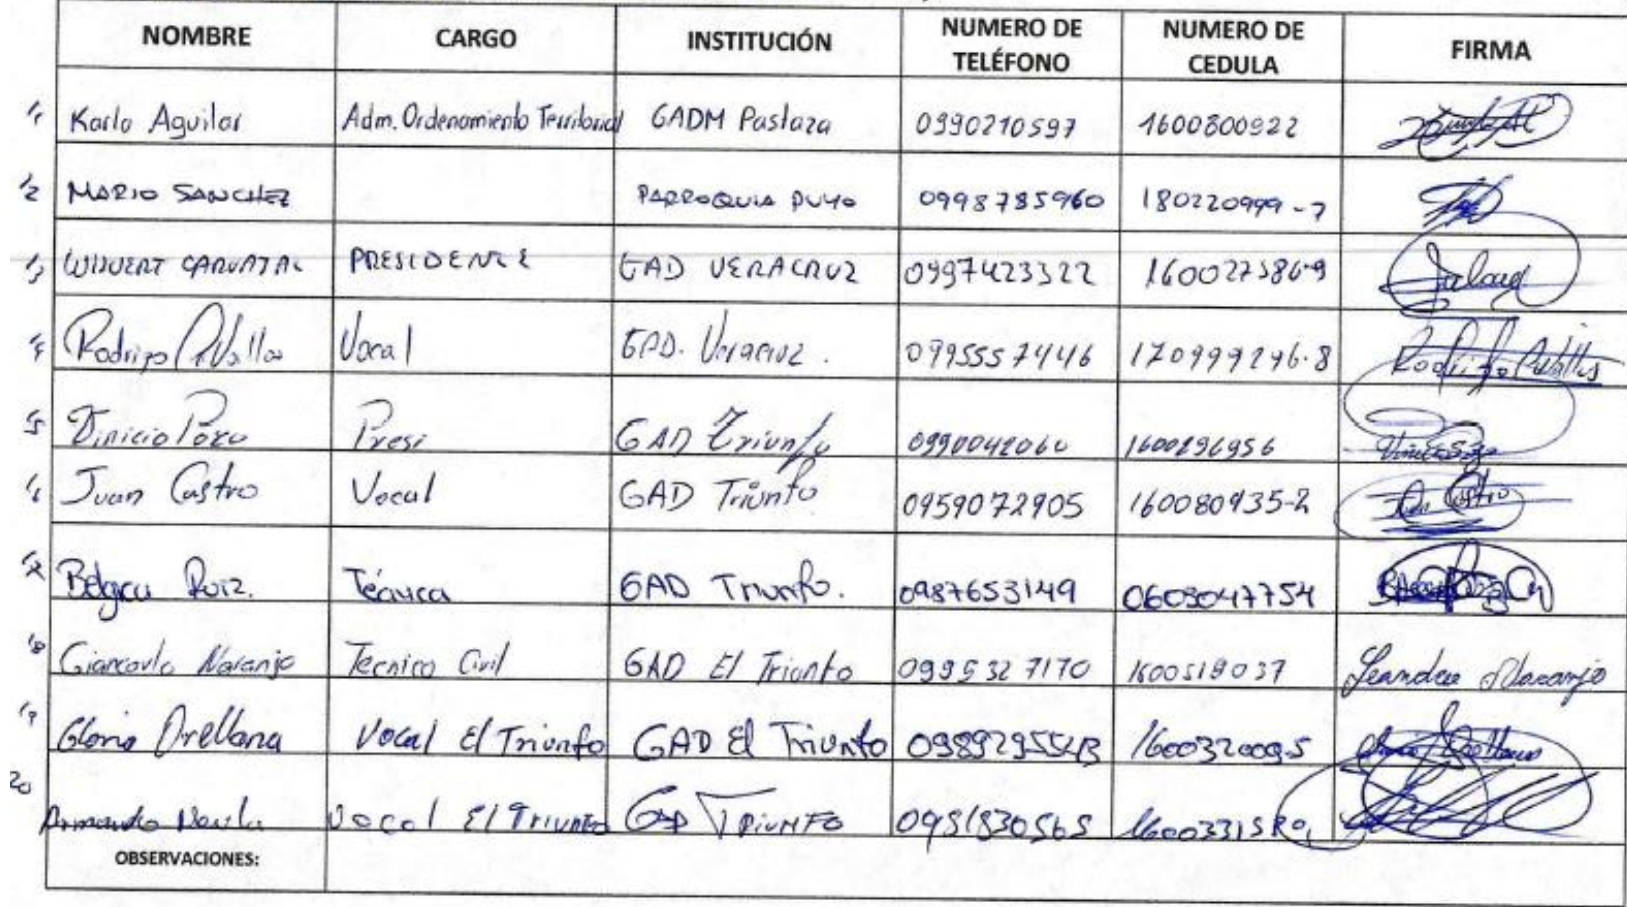 NOMBRE CARGO INSTITUCIÓN NUMERO DE TELÉFONO NUMERO DE CEDULA FIRMA
Karla Aguilar Adm. Ordenamiento Territorial GADM Pastaza 0990210597 1600800922
MARIO SANCHEZ PARROQUIA PUYO 0998785960 180220999-7
CARVAJAL PRESIDENTE GAD VERACRUZ 0997423322 160027586-9
Rodrigo Vocal GAD. Veracruz. 0995557446 170999296-8 Rodrigo
Vinicio Pozo Presi GAD Triunfo 0990042060 1600296956
Juan Castro Vocal GAD Triunfo 0959072905 160080935-2
Ruiz. Técnica GAD Triunfo. 0987653149 0603047754
Giancarlo Naranjo Tecnico Civil GAD El Triunfo 0995327170 1600519037 Leandro Naranjo
Gloria Orellana Vocal El Triunfo GAD El Triunfo 1600320095
Armando Vocal El Triunfo GAD TRIUNFO 0981830565
OBSERVACIONES: